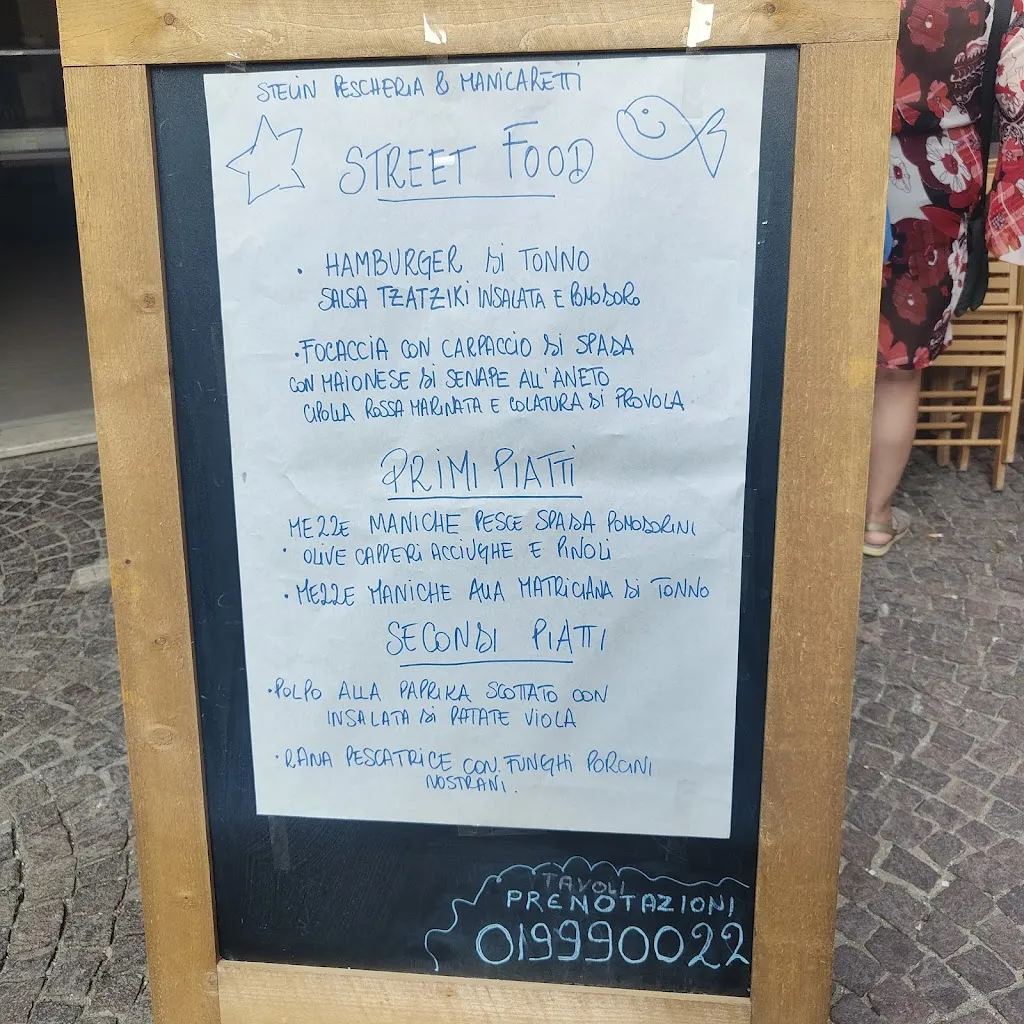 STELIN PESCHERIA & MANICARETTI
STREET FOOD
• HAMBURGER DI TONNO
SALSA TZATZIKI INSALATA E POMODORO
• FOCACCIA CON CARPACCIO DI SPADA
CON MAIONESE DI SENAPE ALL'ANETO
CIPOLLA ROSSA MARINATA E COLATURA DI PROVOLA
PRIMI PIATTI
MEZZE MANICHE PESCE SPADA POMODORINI
• OLIVE CAPPERI ACCIUGHE E PINOLI
• MEZZE MANICHE ALLA MATRICIANA DI TONNO
SECONDI PIATTI
• POLPO ALLA PAPRIKA SCOTTATO CON
INSALATA DI PATATE VIOLA
• RANA PESCATRICE CON FUNGHI PORCINI
NOSTRANI.
TAVOLI
PRENOTAZIONI
019990022